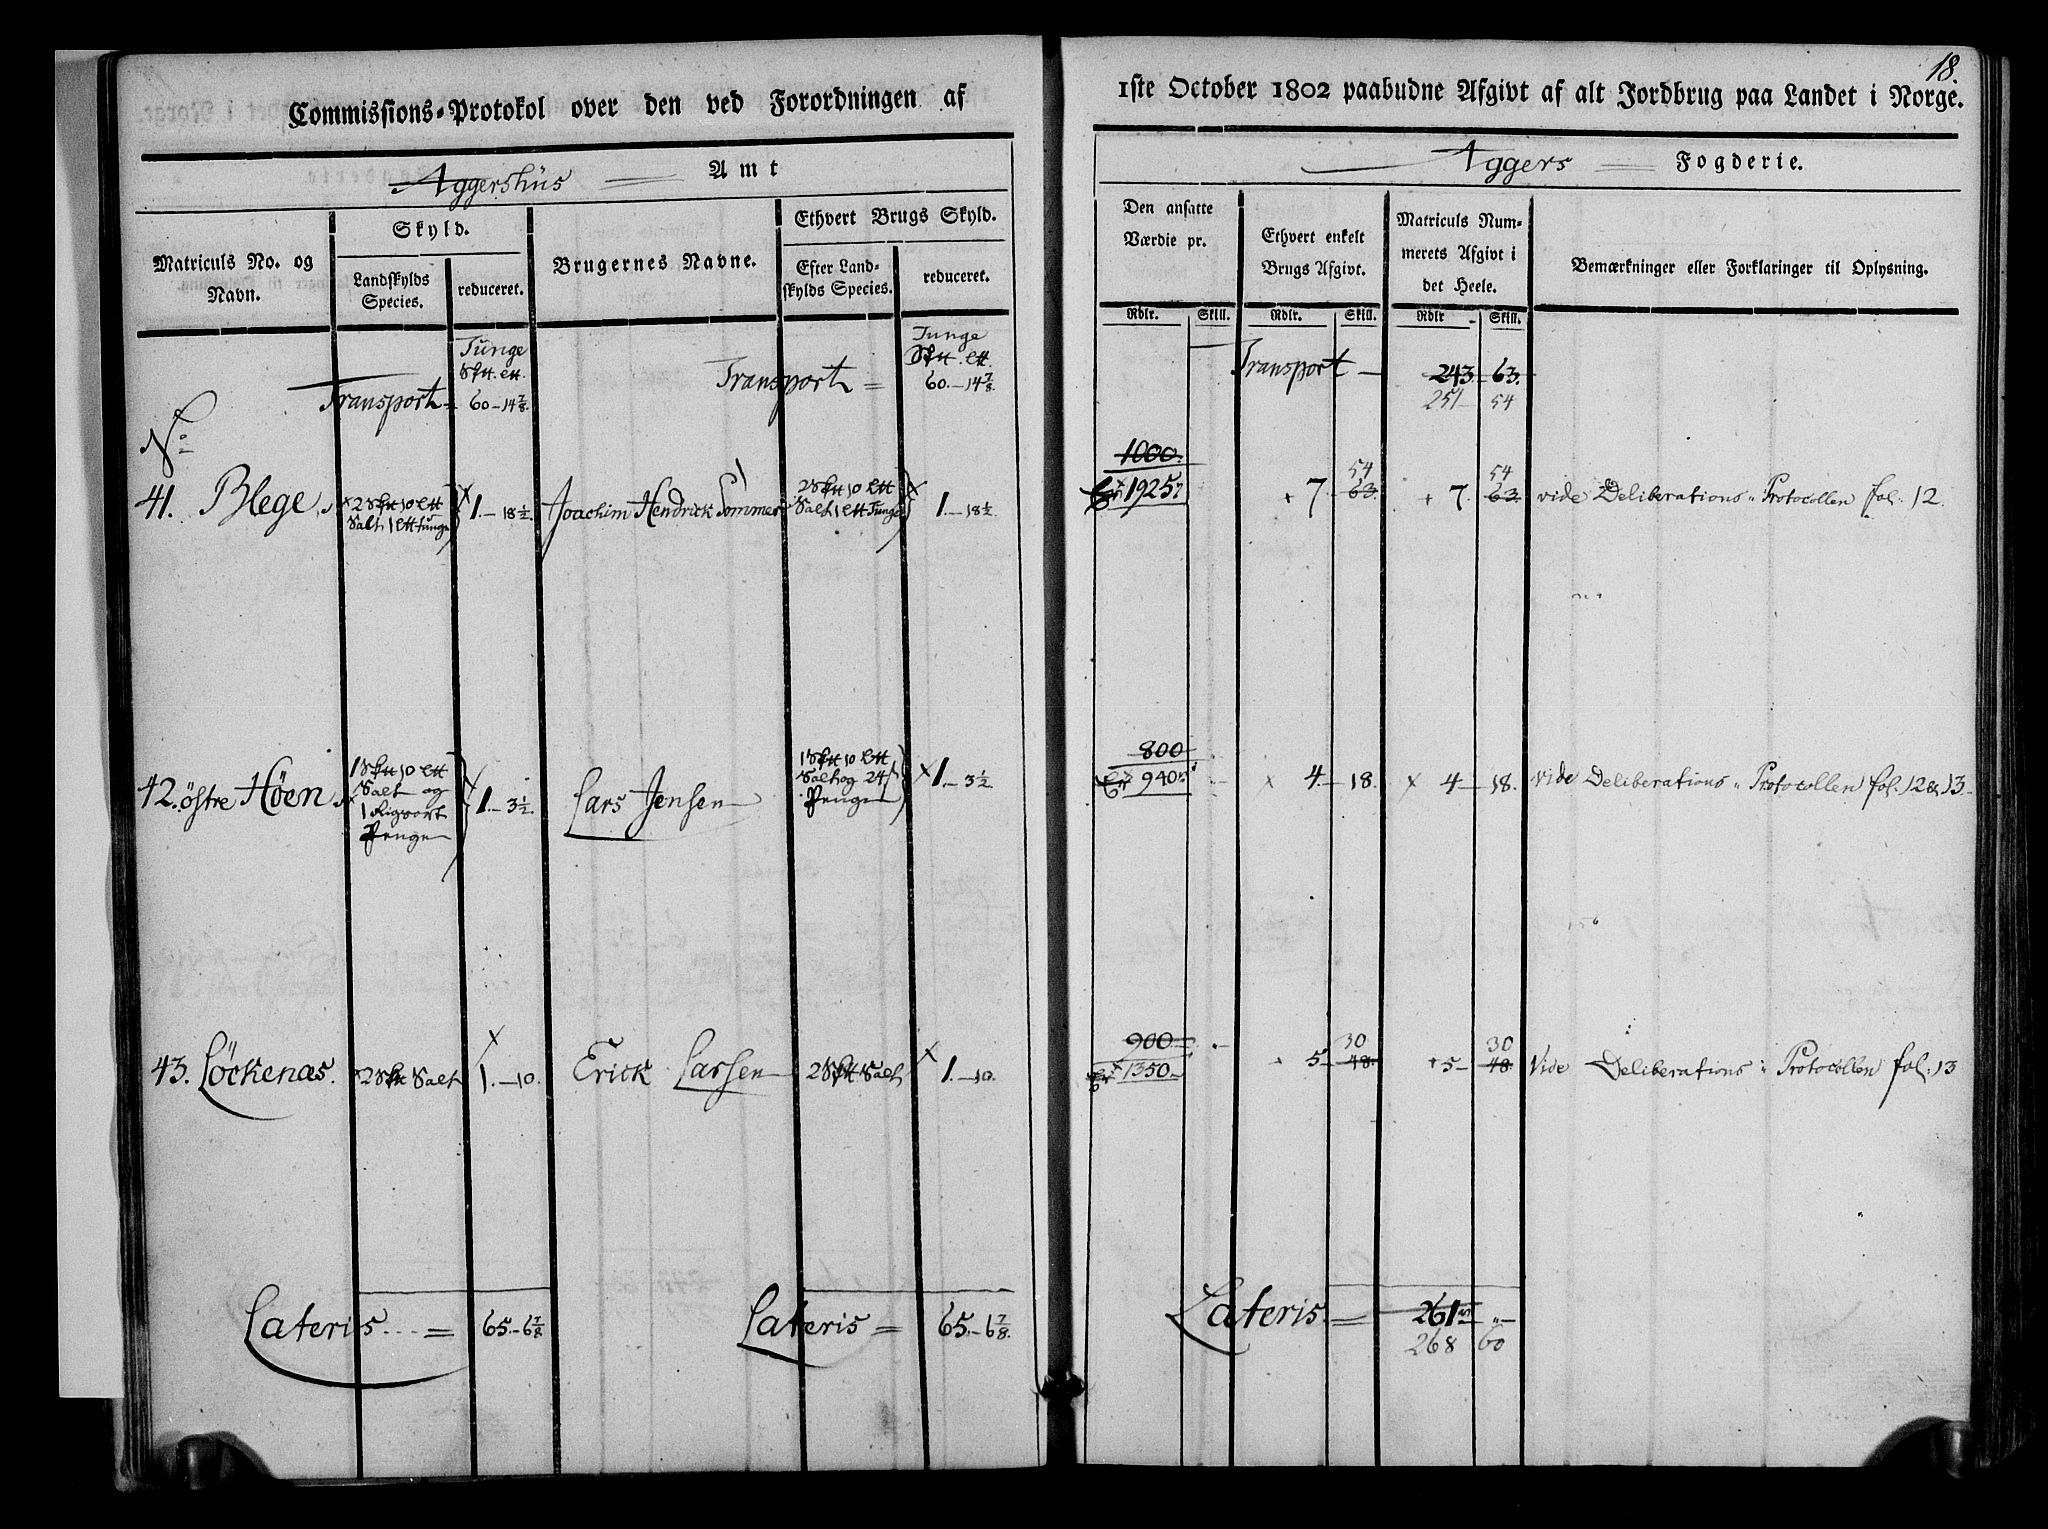 18.
Commissions-Protokol over den ved Forordningen af
1ste October 1802 paabudne Afgivt af alt Jordbrug paa Landet i Norge.
Aggershüs Amt
Aggers Fogderie.
Matriculs No. og Navn.
Skyld.
Landskylds Species.
reduceret.
Brugernes Navne.
Ethvert Brugs Skyld.
Efter Landskylds Species.
reduceret.
Den ansatte Værdie pr.
Rdlr. Skill.
Ethvert enkelt Brugs Afgivt.
Rdlr. Skill.
Matriculs Nummerets Afgivt i det Heele.
Rdlr Skill.
Bemærkninger eller Forklaringer til Oplysning.
Tunge
Transport 60 – 14 7/8.
Tunge
Transport = 60. – 14 7/8
Transport – 243. 63.
251 54
No
41. Blege
2 10
Salt 1 Tunge
1. – 18 1/2
Joachim Hendrick Sommer
2 10
Salt 1 Tunge
1. – 18 1/2
1000.
1925
+ 7. 63. 54
+ 7. 63. 54
vide Deliberations-Protocollen fol. 12.
42. östre Höen
1 10
Salt og
1
Penge
1. – 3 1/2.
Lars Jensen
1 10
Salt og 24
Penge
1. – 3 1/2
800
940
× 4. – 18.
× 4 – 18.
vide Deliberations-Protocollen fol. 12 & 13.
43. Löckenæs.
2 Salt
1. – 10.
Erick Larsen
2 Salt
1. – 10.
900
1350
+ 5 – 48. 30
+ 5 – 48. 30
Vide Deliberations-Protocollen fol. 13
Lateris = 65. – 6 7/8
Lateris = 65. – 6 7/8.
Lateris = 261
268 60